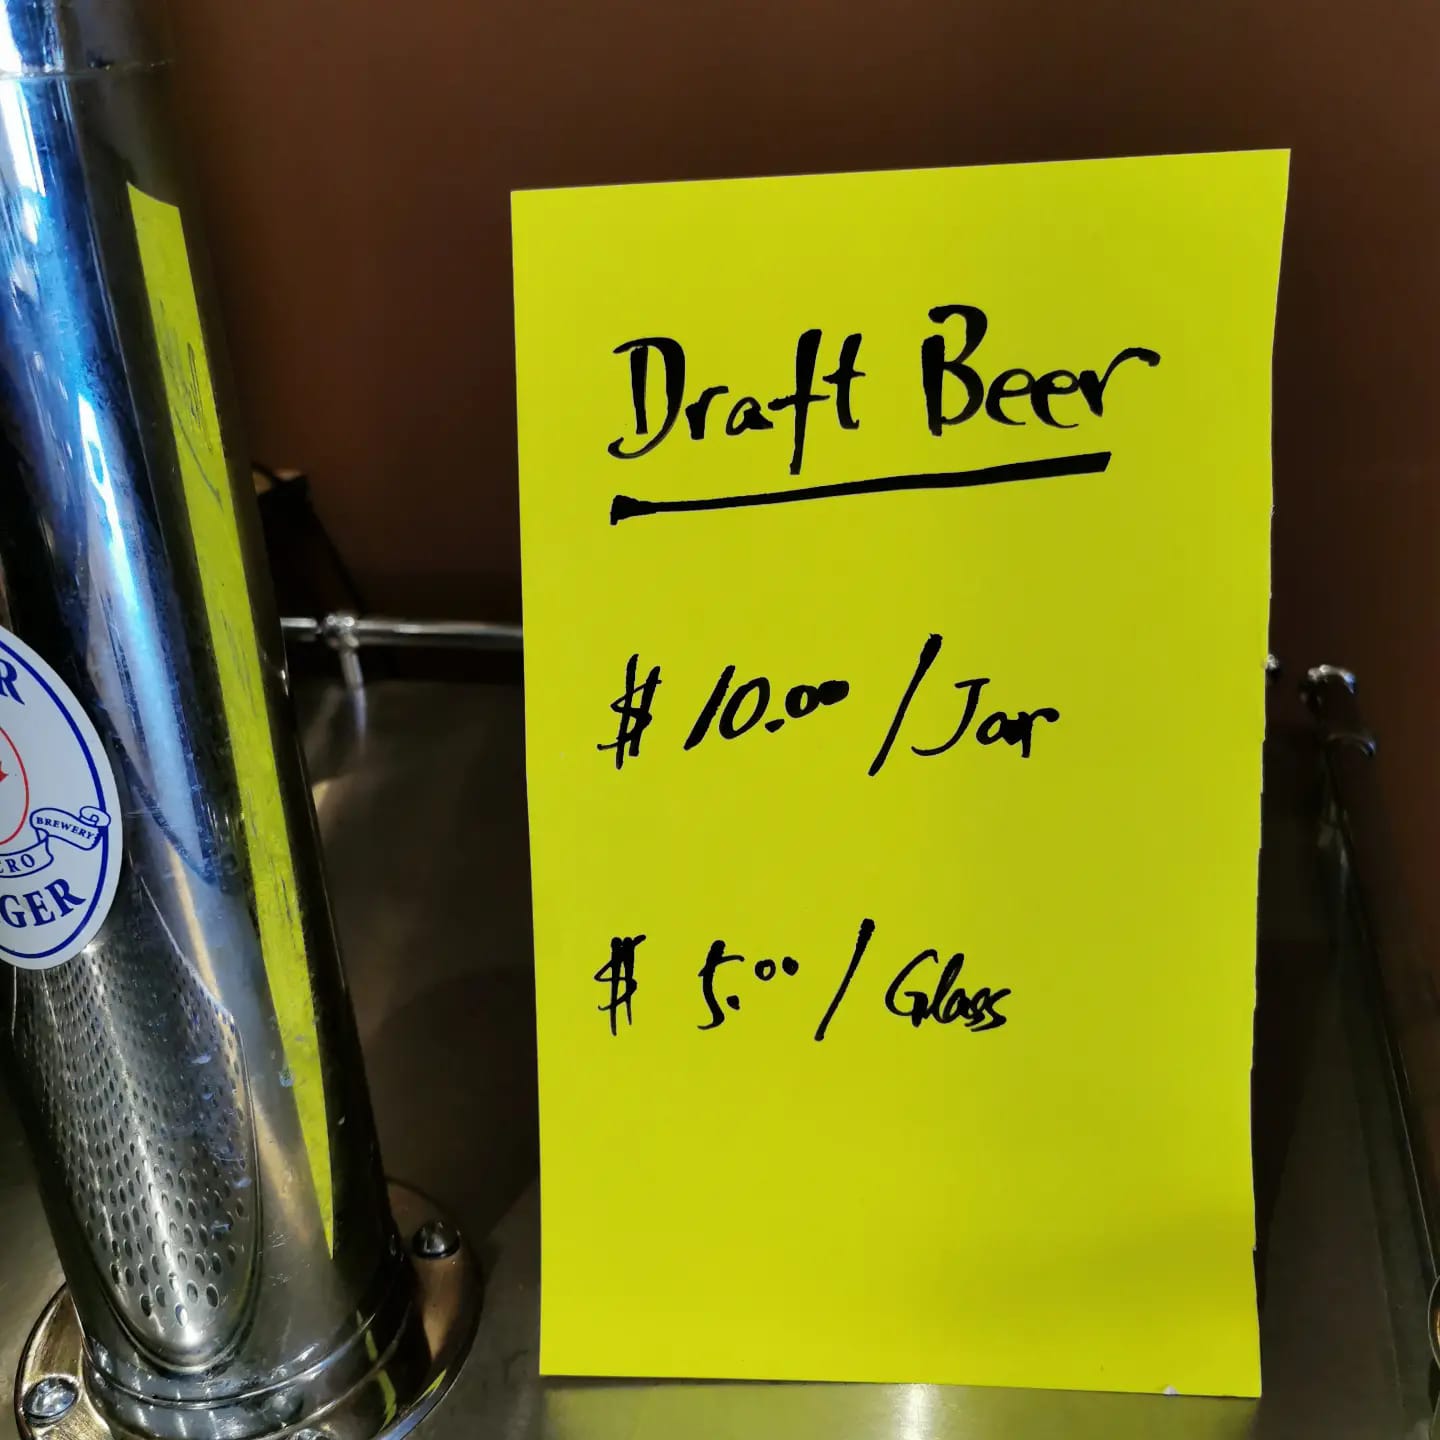 Draft Beer
$ 10.00 / Jar
$ 5.00 / Glass
R
BREWERY
CRO
GER